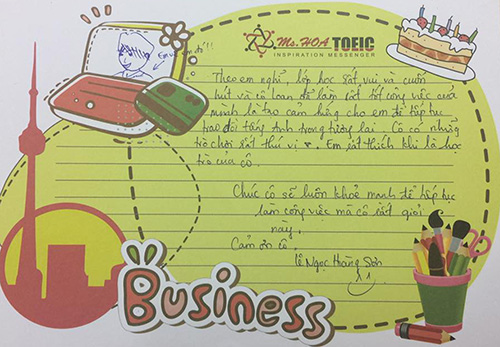 Ms. HOA TOEIC
INSPIRATION MESSENGER
Em vẽ em đó!!
Theo em nghĩ, lớp học rất vui và cuốn
hút và cô Loan đã làm rất tốt công việc của
mình là tạo cảm hứng cho em để tiếp tục
trao dồi tiếng Anh trong tương lai. Cô có những
trò chơi rất thú vị. Em rất thích khi là học
trò của cô.
Chúc cô sẽ luôn khoẻ mạnh để tiếp tục
làm công việc mà cô rất giỏi
này.
Cảm ơn cô.
Lê Ngọc Hoàng Sơn
Business